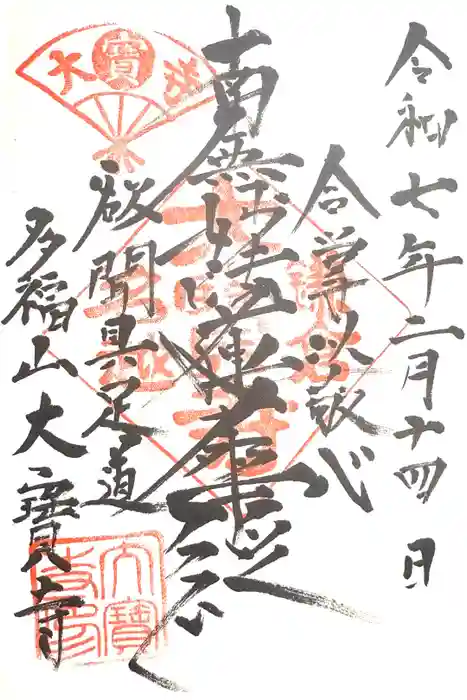 令和七年二月十四日
合掌以敬心
南無妙法蓮華経
欲聞具足道
多福山大寶寺
大寶寺印